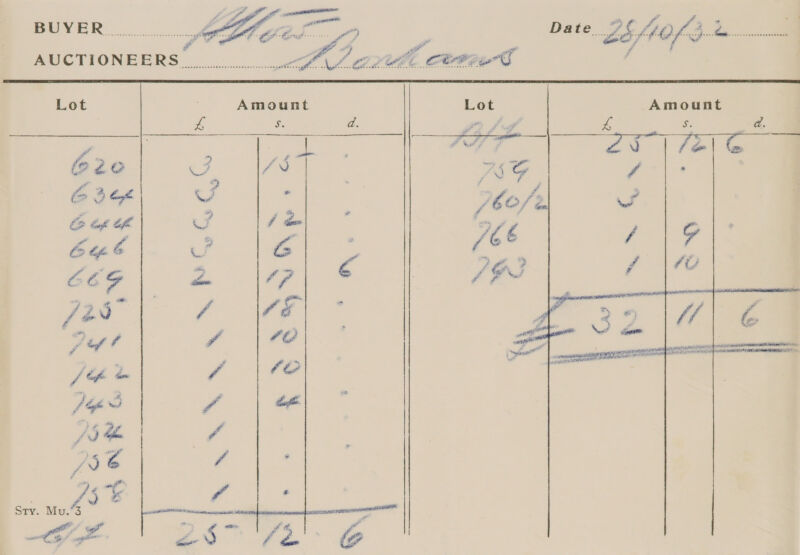 BUYER Date 28/10/32
AUCTIONEERS Bonhams
Lot Amount
£ s. d.
620 3 15 .
634 3 . .
644 3 12 .
646 3 6 .
669 2 17 6
725 1 18 .
741 1 10 .
742 1 10 .
743 1 4 .
754 1 .
756 1 . .
758 1 .
STY. MU. 3
C/F. 25 12 6
Lot Amount
£ s. d.
B/F 25 12 6
759 1 .
760/2 3
766 1 9 .
793 1 10
£ 32 11 6